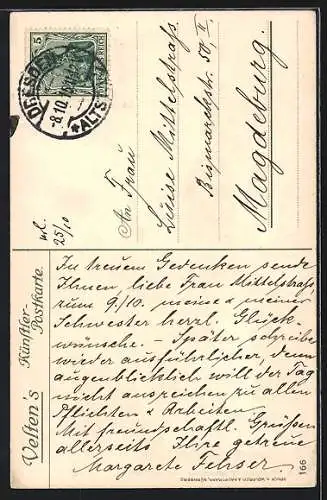 Velten's Künstler-Postkarte.
5
DEUTSCHES REICH
DRESDEN
ALTST.
-8.10.
An Frau
Luise Mittelstraß
Bismarckstr. 50, II
Magdeburg.
25/10
In treuem Gedenken sende
Ihnen, liebe Frau Mittelstraß
zum 9./10. meine u. meiner
Schwester herzl. Glück-
wünsche. – Später schreibe
wieder ausführlicher, denn
augenblicklich will der Tag
nicht ausreichen zu allen
Pflichten u. Arbeiten.
Mit freundschaftl. Grüßen
allerseits Ihre getreue
Margarete Fehser
166